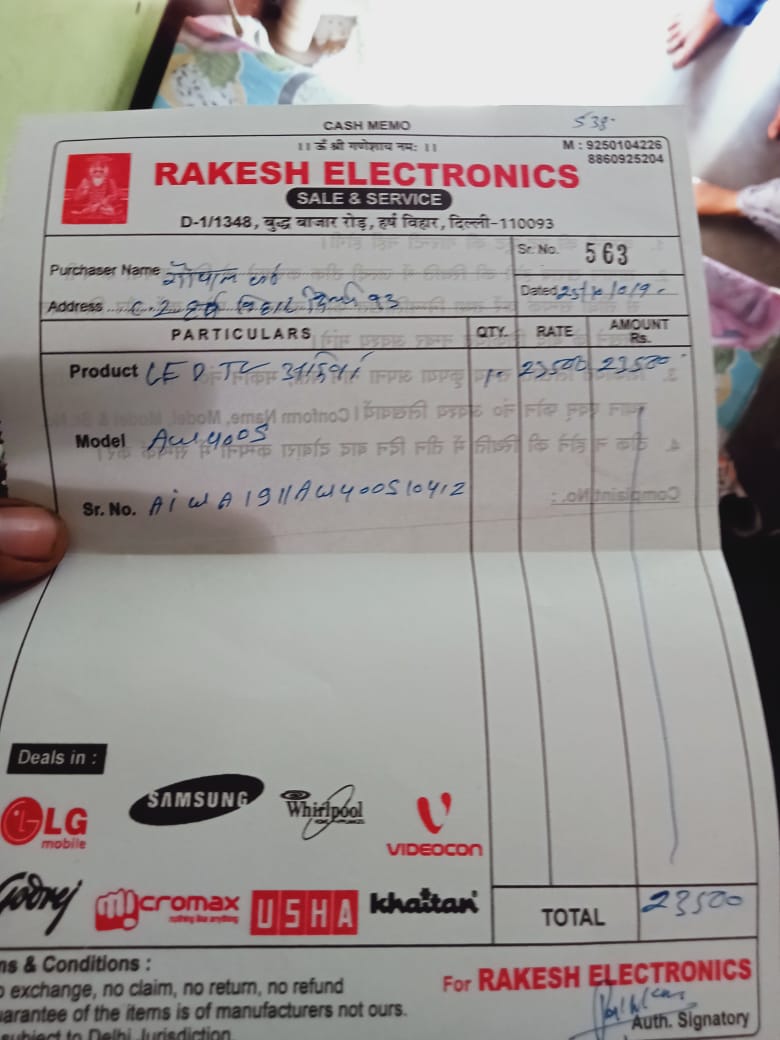 CASH MEMO
538-
।। ॐ श्री गणेशाय नमः ।।
M : 9250104226
8860925204
RAKESH ELECTRONICS
SALE & SERVICE
D-1/1348, बुद्ध बाजार रोड़, हर्ष विहार, दिल्ली-110093
Sr. No. 563
Purchaser Name गोपाल
Dated 25/10/19
Address C-2 हर्ष विहार दिल्ली 93
PARTICULARS QTY. RATE AMOUNT Rs.
Product LED TV 23500 23500
Model AW400S
Sr. No. AiWA1911AW400S10412
Deals in :
LG mobile
SAMSUNG
Whirlpool
VIDEOCON
Godrej
Micromax
nothing like anything
USHA
khaitan
TOTAL 23500
ms & Conditions :
o exchange, no claim, no return, no refund
uarantee of the items is of manufacturers not ours.
subject to Delhi Jurisdiction
For RAKESH ELECTRONICS
Auth. Signatory